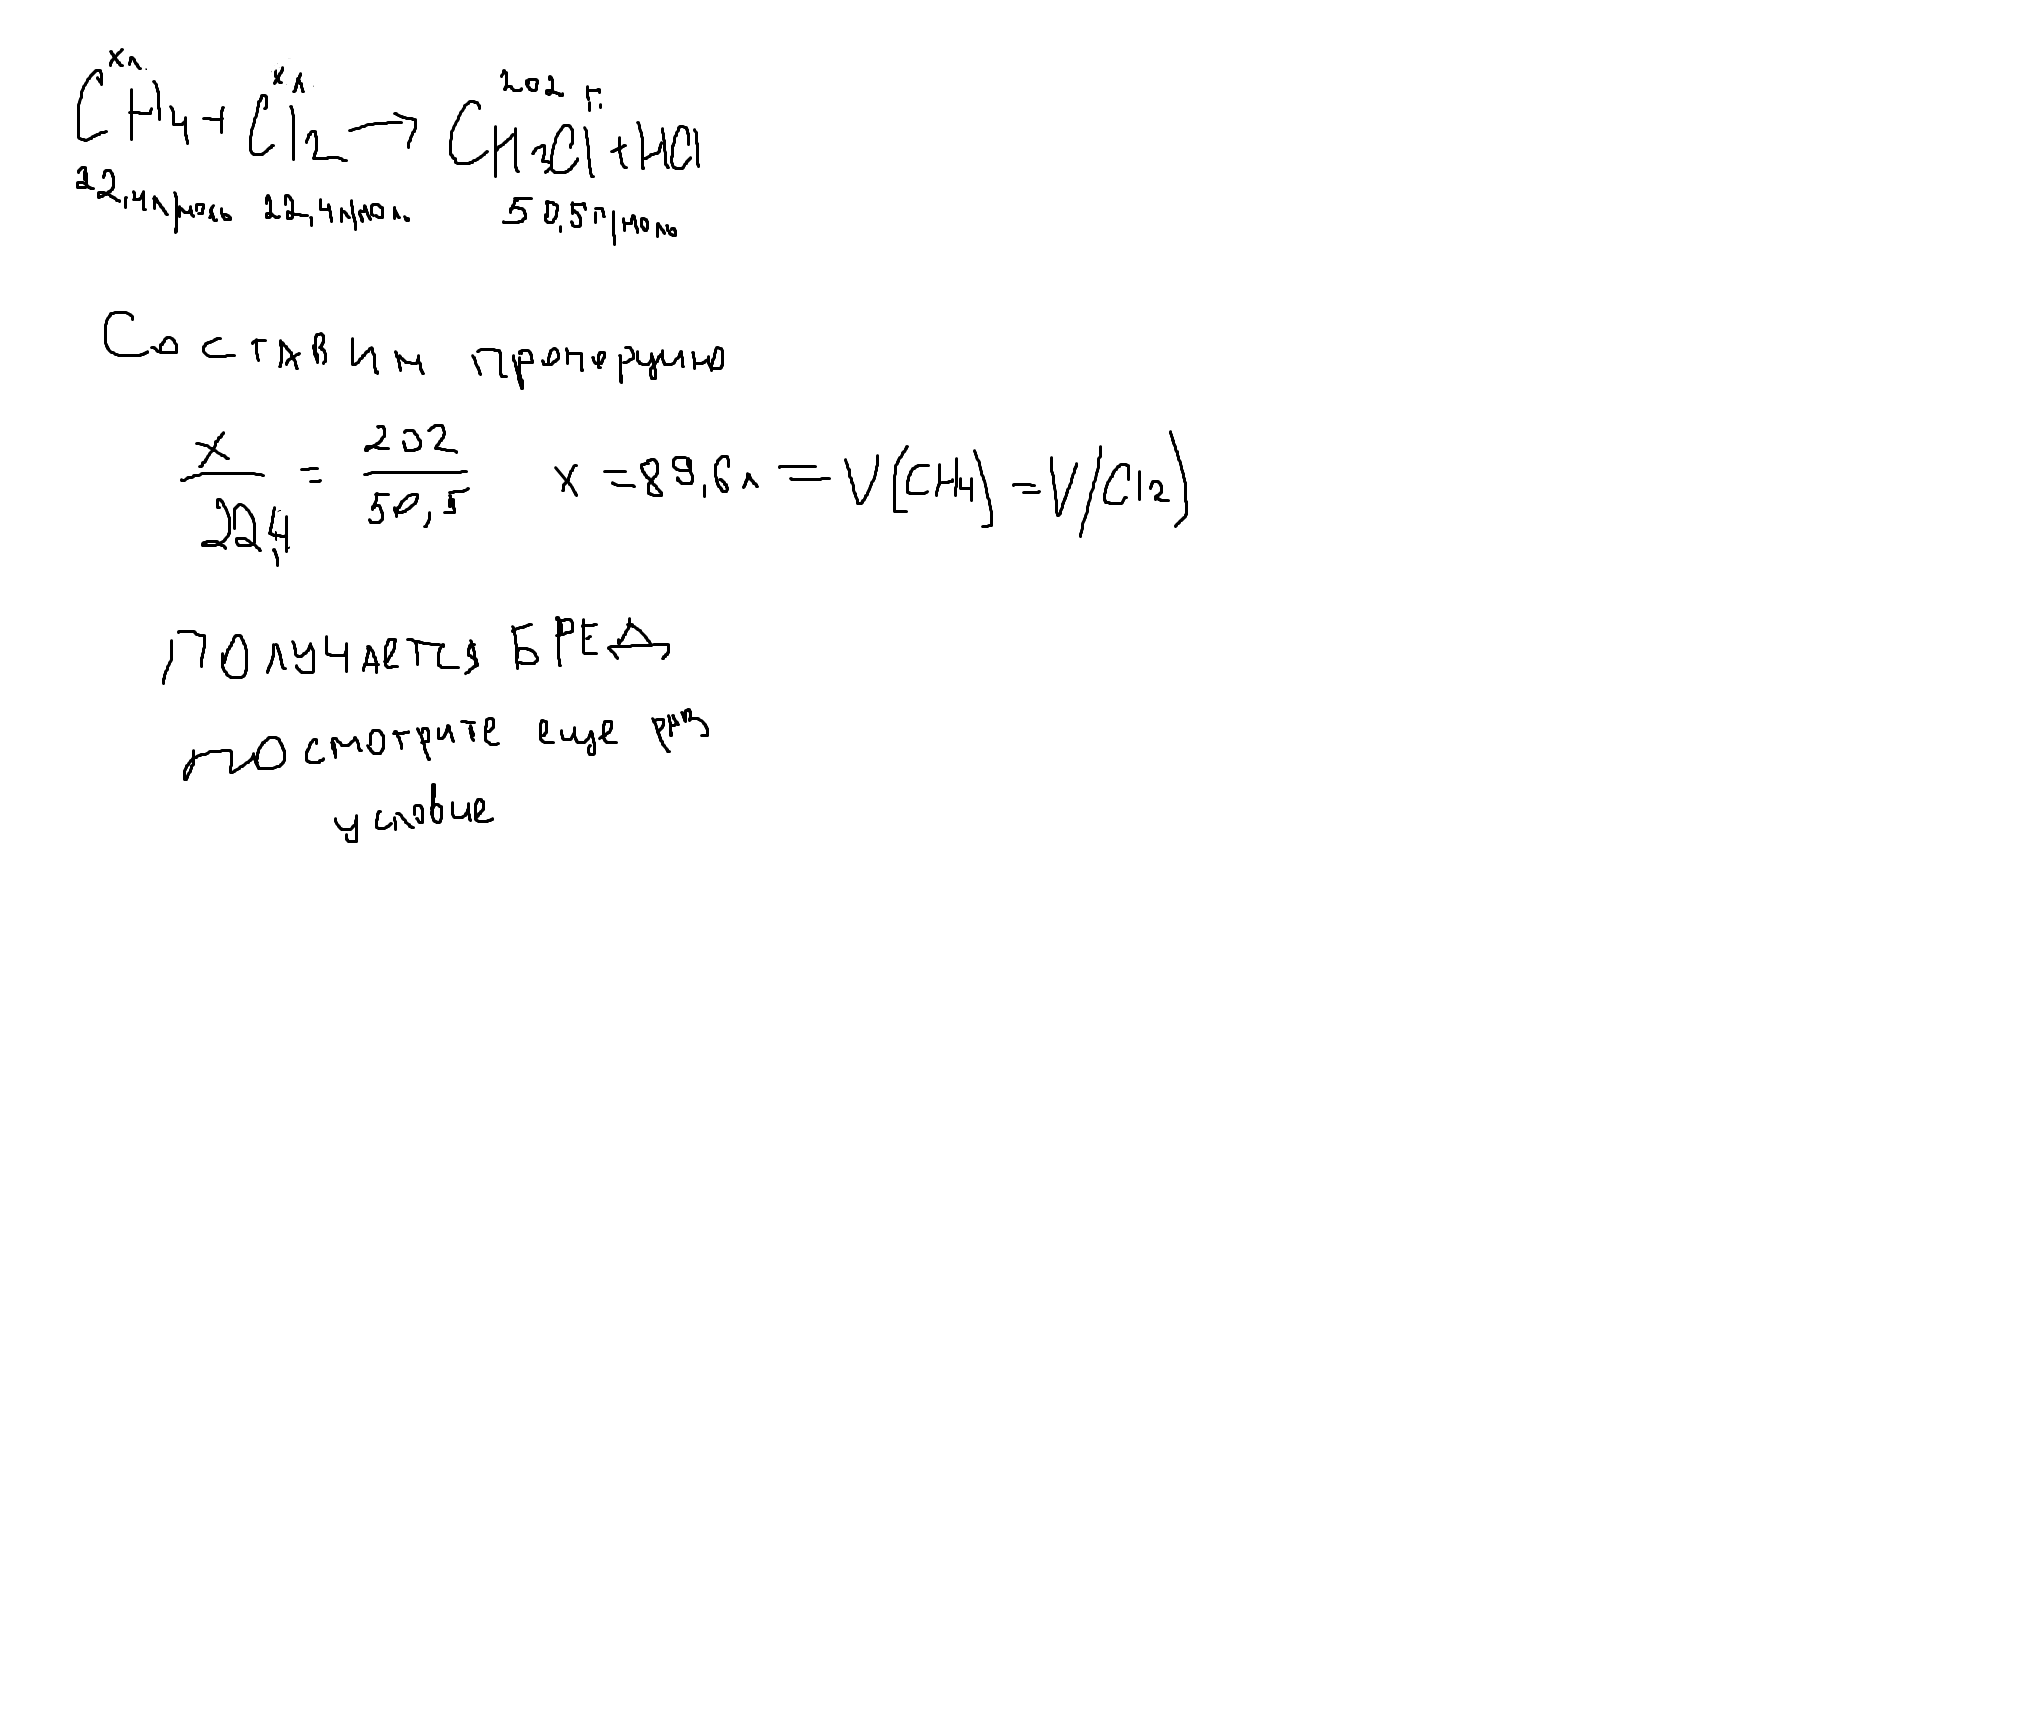 хл. хл 202 г.
CH4 + Cl2 → CH3Cl + HCl
22,4л/моль 22,4л/моль 50,5г/моль
Составим пропорцию
x/22,4 = 202/50,5 x = 89,6л = V(CH4) = V(Cl2)
ПОЛУЧАЕТСЯ БРЕД,
посмотрите еще раз
условие